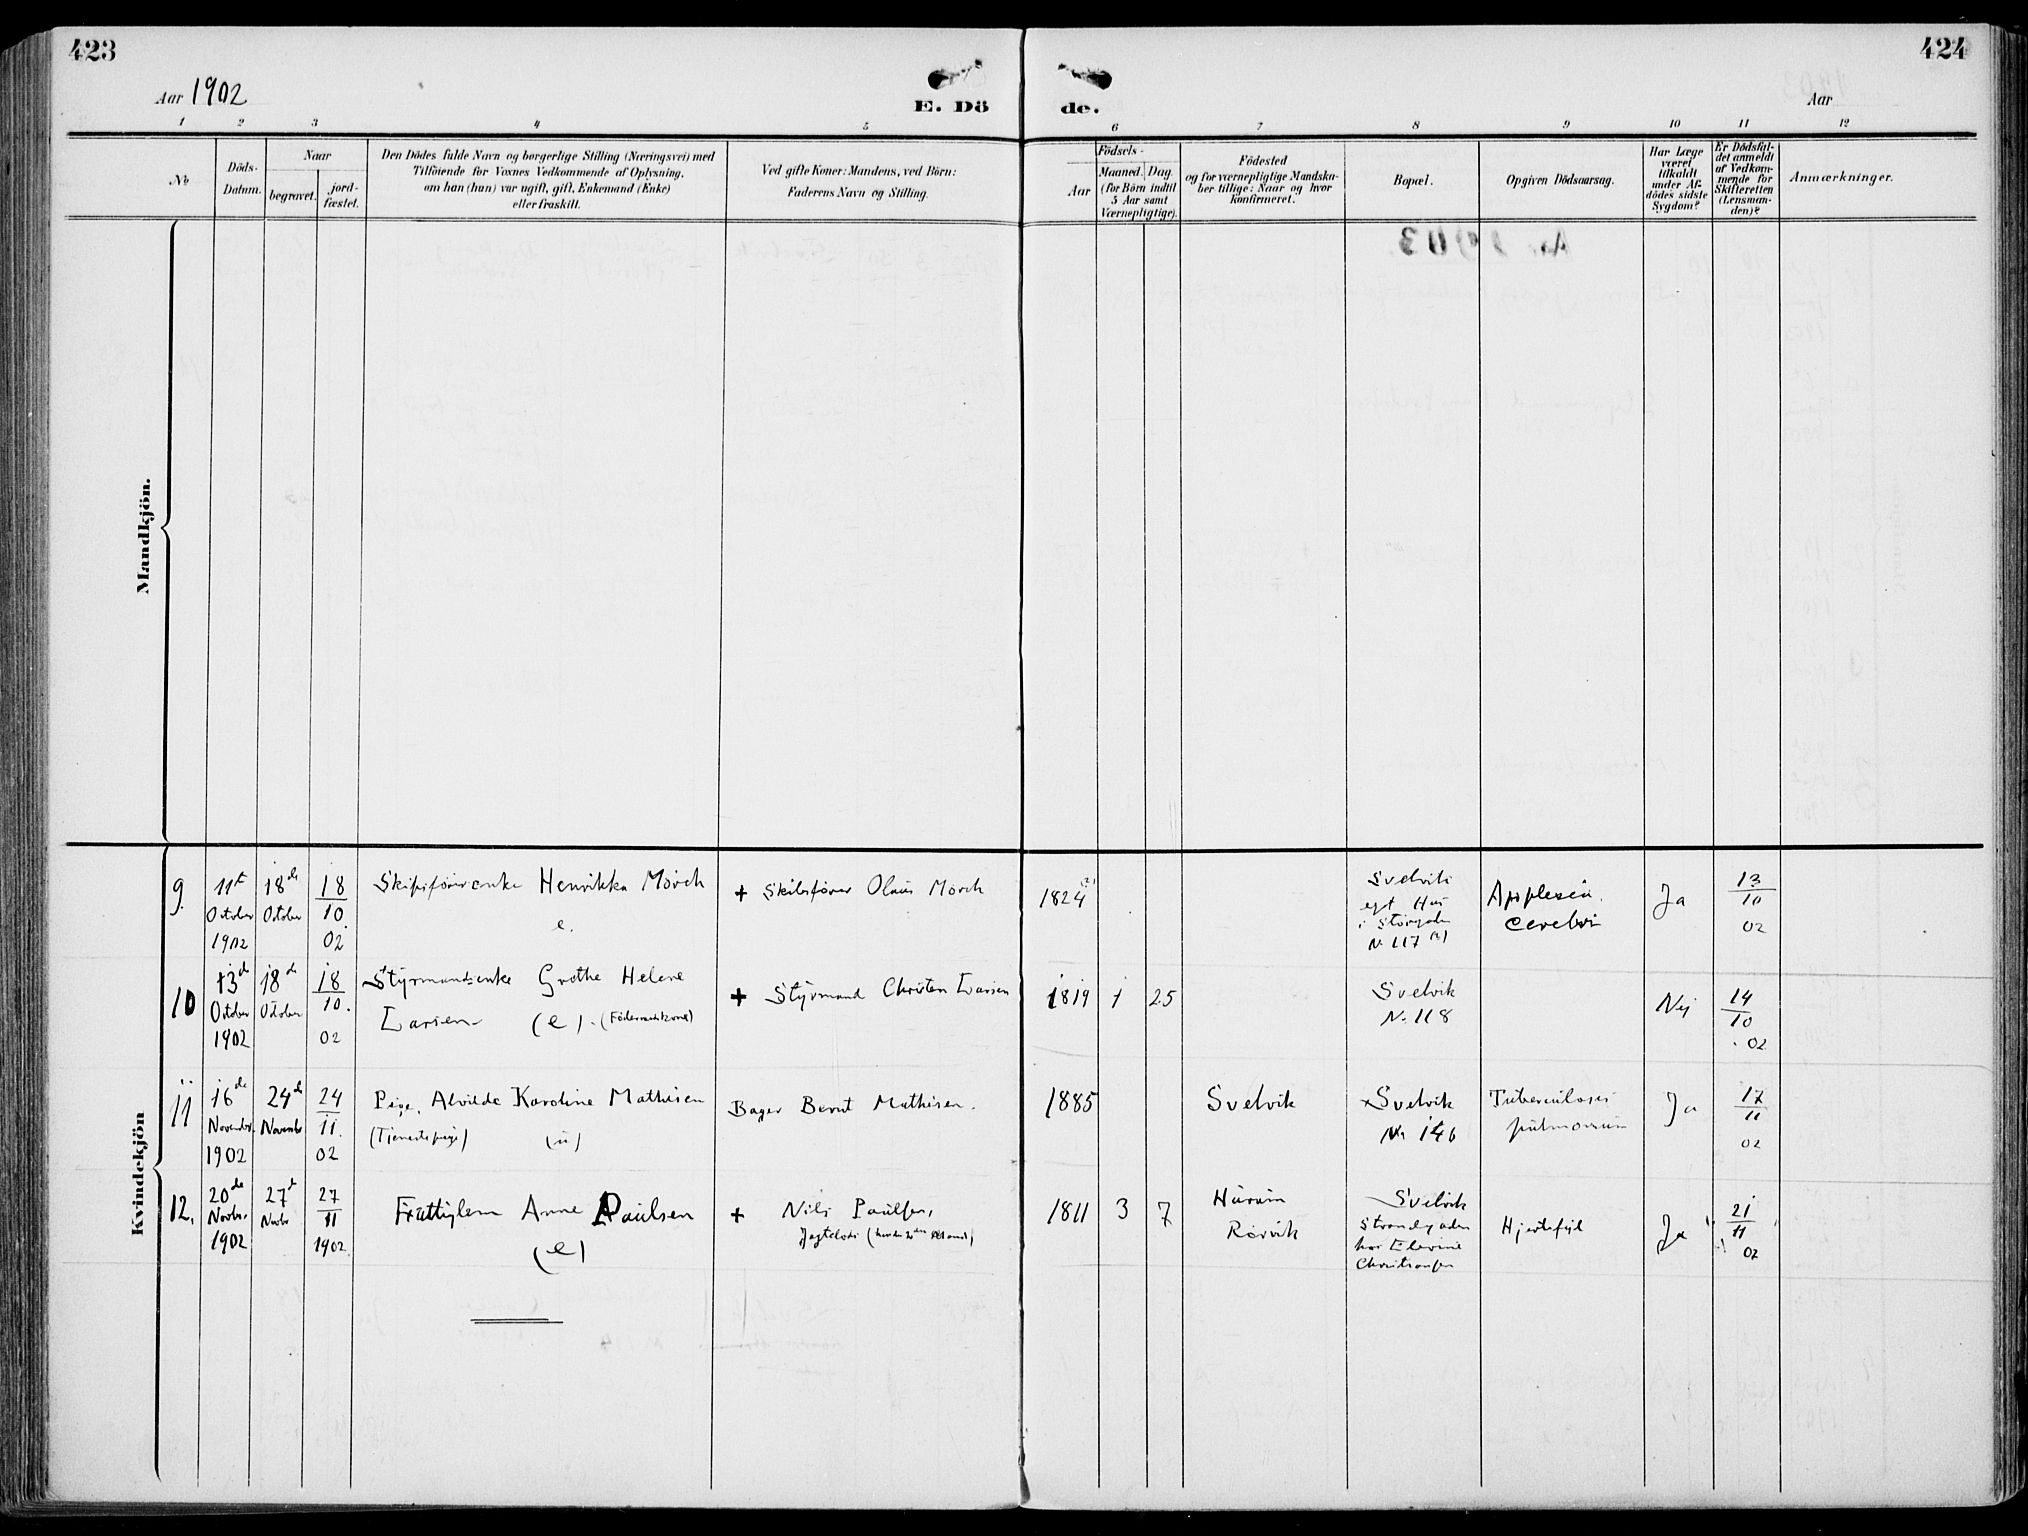 423
424
Aar 1902
E. Dö
de.
Aar
1 2 3 4 5 6 7 8 9 10 11 12
No
Döds-
Datum.
Naar
begravet.
jord-
fæstet.
Den Dödes fulde Navn og borgerlige Stilling (Næringsvei) med
Tilföiende for Voxnes Vedkommende af Oplysning,
om han (hun) var ugift, gift, Enkemand (Enke)
eller fraskilt.
Ved gifte Koner: Mandens, ved Börn:
Faderens Navn og Stilling.
Födsels-
Aar
Maaned.
Dag.
(for Börn indtil
5 Aar samt
Værnepligtige).
Födested
og for værnepligtige Mandska-
ber tillige: Naar og hvor
konfirmeret.
Bopæl.
Opgiven Dödsaarsag.
Har Læge
været
tilkaldt
under Af-
dödes sidste
Sygdom?
Er Dödsfal-
det anmeldt
af Vedkom-
mende for
Skifteretten
(Lensman-
den)?
Anmærkninger.
Mandkjön.
Kvindekjön
9.
11te
October
1902
18de
October
18
10.
02
Skibsførerenke Henrikka Mörch
e.
+ Skibsfører Olaus Mörch
1824
Svelvik
eget Hus
i Storgaden
No 117
Applexia
Cerebri
Ja
13
10
02
10
13de
October
1902
18de
October
18
10.
02
Styrmandsenke Grethe Helene
Larsen (e).
+ Styrmand Christen Larsen
1819 1 25
Svelvik
No 118
Nej
14
10
02
11
16de
November
1902
24de
November
24
11.
02
Pige, Alvilde Karoline Mathisen
(Tjenestepige) (u)
Bager Bernt Mathisen.
1885
Svelvik
Svelvik
No 146
Tuberculosis
pulmonum
Ja
17
11
02
12.
20de
Novbr.
1902
27de
Novbr
27
11
1902.
Fattiglem Anne Paulsen
(e)
+ Nils Paulsen,
1811 3 7
Hurum
Rörvik
Svelvik
Strandgaden
hos Elevine
Christiansen
Hjertefejl
Ja
21
11
02